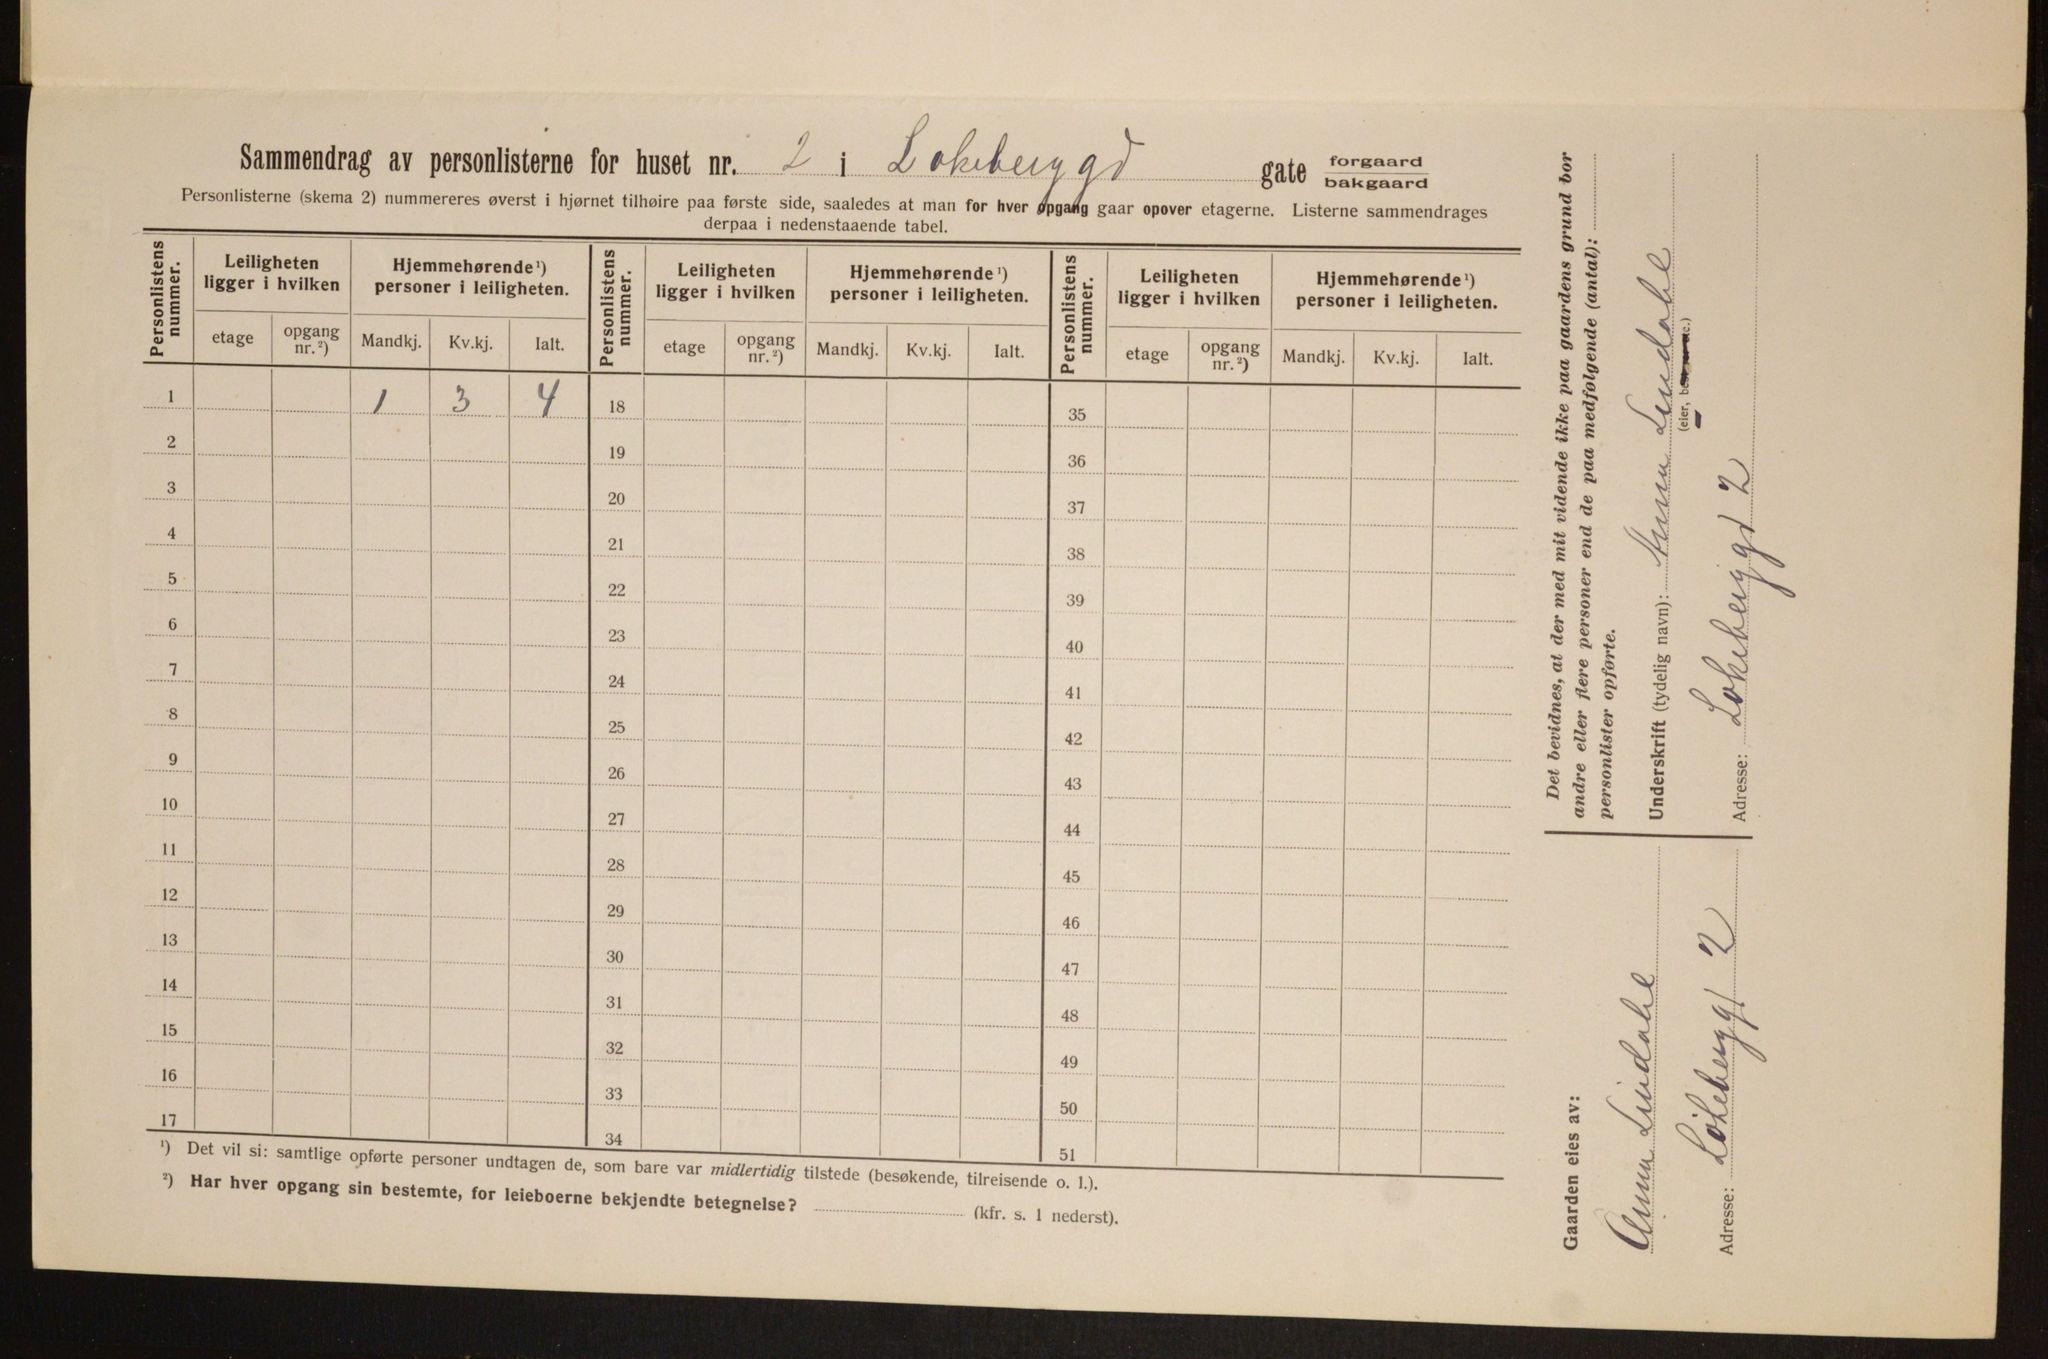 Sammendrag av personlisterne for huset nr. 2 i Lokebergyd gate forgaard bakgaard
Personlisterne (skema 2) nummereres øverst i hjørnet tilhøire paa første side, saaledes at man for hver opgang gaar opover etagerne. Listerne sammendrages
derpaa i nedenstaaende tabel.
Personlistens nummer. Leiligheten ligger i hvilken Hjemmehørende ¹) personer i leiligheten. Personlistens nummer. Leiligheten ligger i hvilken Hjemmehørende ¹) personer i leiligheten. Personlistens nummer. Leiligheten ligger i hvilken Hjemmehørende ¹) personer i leiligheten.
etage opgang nr. ²) Mandkj. Kv.kj. Ialt. etage opgang nr. ²) Mandkj. Kv.kj. Ialt. etage opgang nr. ²) Mandkj. Kv.kj. Ialt.
1 1 3 4 18 35
2 19 36
3 20 37
4 21 38
5 22 39
6 23 40
7 24 41
8 25 42
9 26 43
10 27 44
11 28 45
12 29 46
13 30 47
14 31 48
15 32 49
16 33 50
17 34 51
¹) Det vil si: samtlige opførte personer undtagen de, som bare var midlertidig tilstede (besøkende, tilreisende o. l.).
²) Har hver opgang sin bestemte, for leieboerne bekjendte betegnelse? (kfr. s. 1 nederst).
Det bevidnes, at der med mit vidende ikke paa gaardens grund bor
andre eller flere personer end de paa medfølgende (antal):
personlister opførte.
Underskrift (tydelig navn): Anna Lindahl
(eier,
Adresse: Lokebergyd 2
Gaarden eies av:
Anna Lindahl
Adresse: Lökebergyd 2